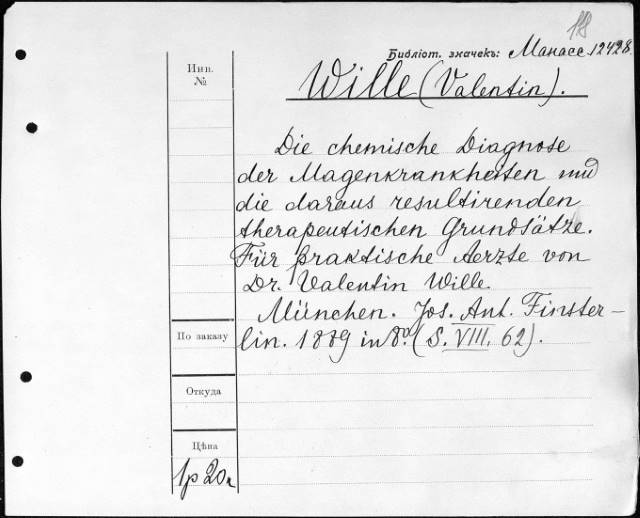 118
Библіот. значекъ: Манасс 12428.
Инв.
№
Wille (Valentin).
Die chemische Diagnose
der Magenkrankheiten und
die daraus resultirenden
therapeutischen Grundsätze.
Für praktische Aerzte von
Dr. Valentin Wille.
München. Jos. Ant. Finster-
По заказу
lin. 1889 in 8o. (S. VIII. 62).
Откуда
Цѣна
1р 20к